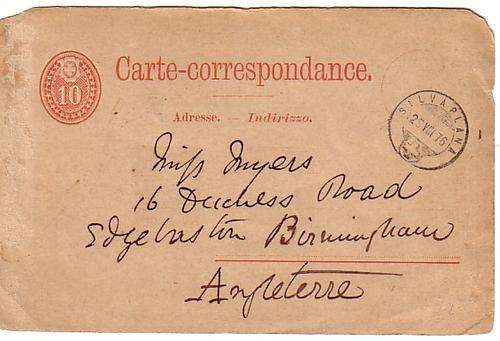 10
Carte-correspondance.
Adresse. — Indirizzo.
SILVAPLANA
Miss Myers
16 Duchess Road
Edgebaston Birmingham
Angleterre